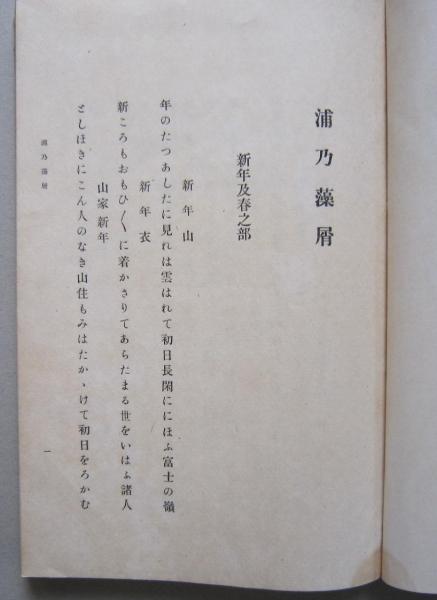 浦乃藻屑
新年及春之部
新年山
年のたつあしたに見れは雲はれて初日長閑ににほふ富士の嶺
新年衣
新ころもおもひ〳〵に着かさりてあらたまる世をいはふ諸人
山家新年
としほきにこん人のなき山住もみはたかゝけて初日をろかむ
浦乃藻屑
一